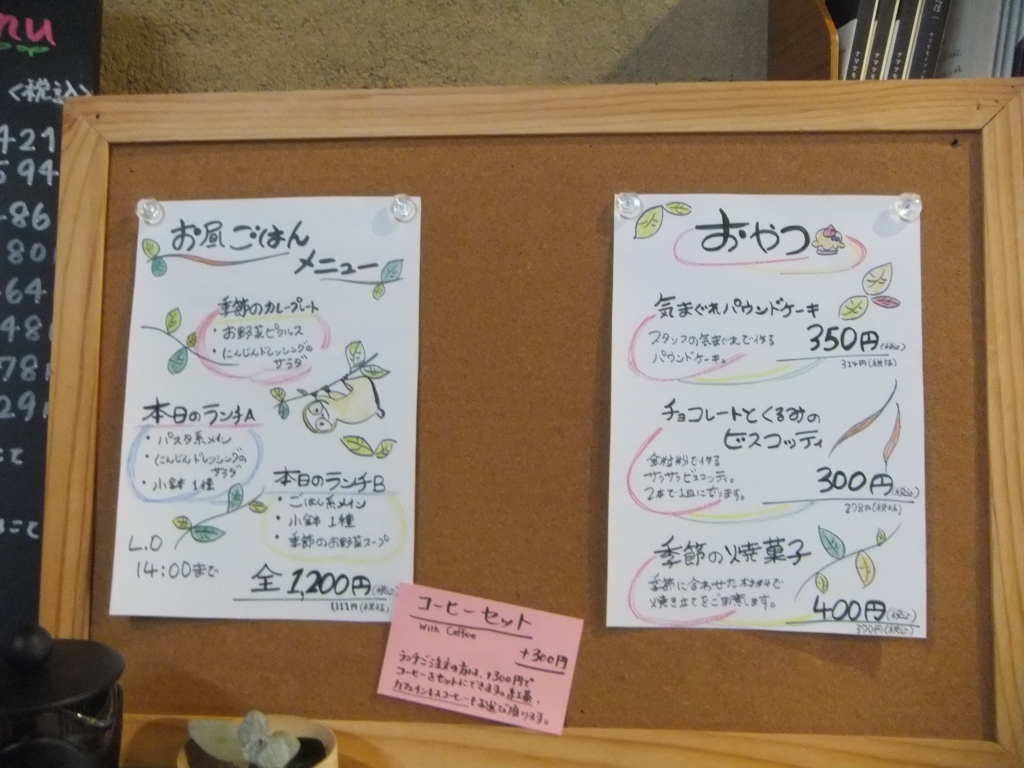 nu
<税込>
421
594
86
80
64
48
78
29
にて
にて
お昼ごはん
メニュー
季節のカレープレート
・お野菜ピクルス
・にんじんドレッシングの
サラダ
本日のランチA
・パスタ系メイン
・にんじんドレッシングの
サラダ
・小鉢 1種
本日のランチB
・ごはん系メイン
・小鉢 1種
・季節のお野菜スープ
L.O
14:00まで
全 1,200円(税込)
1,111円(税抜)
コーヒーセット
with Coffee
+300円
ランチご注文の方は、+300円で
コーヒーをセットにできます。紅茶、
カフェインレスコーヒーもお選び頂けます。
おやつ
気まぐれパウンドケーキ
スタッフの気まぐれで作る
パウンドケーキ。
350円(税込)
324円(税抜)
チョコレートとくるみの
ビスコッティ
全粒粉で作る
ザクザクビスコッティ。
2本で1皿になります。
300円(税込)
278円(税抜)
季節の焼菓子
季節に合わせた材料で
焼き立てをご用意します。
400円(税込)
370円(税抜)